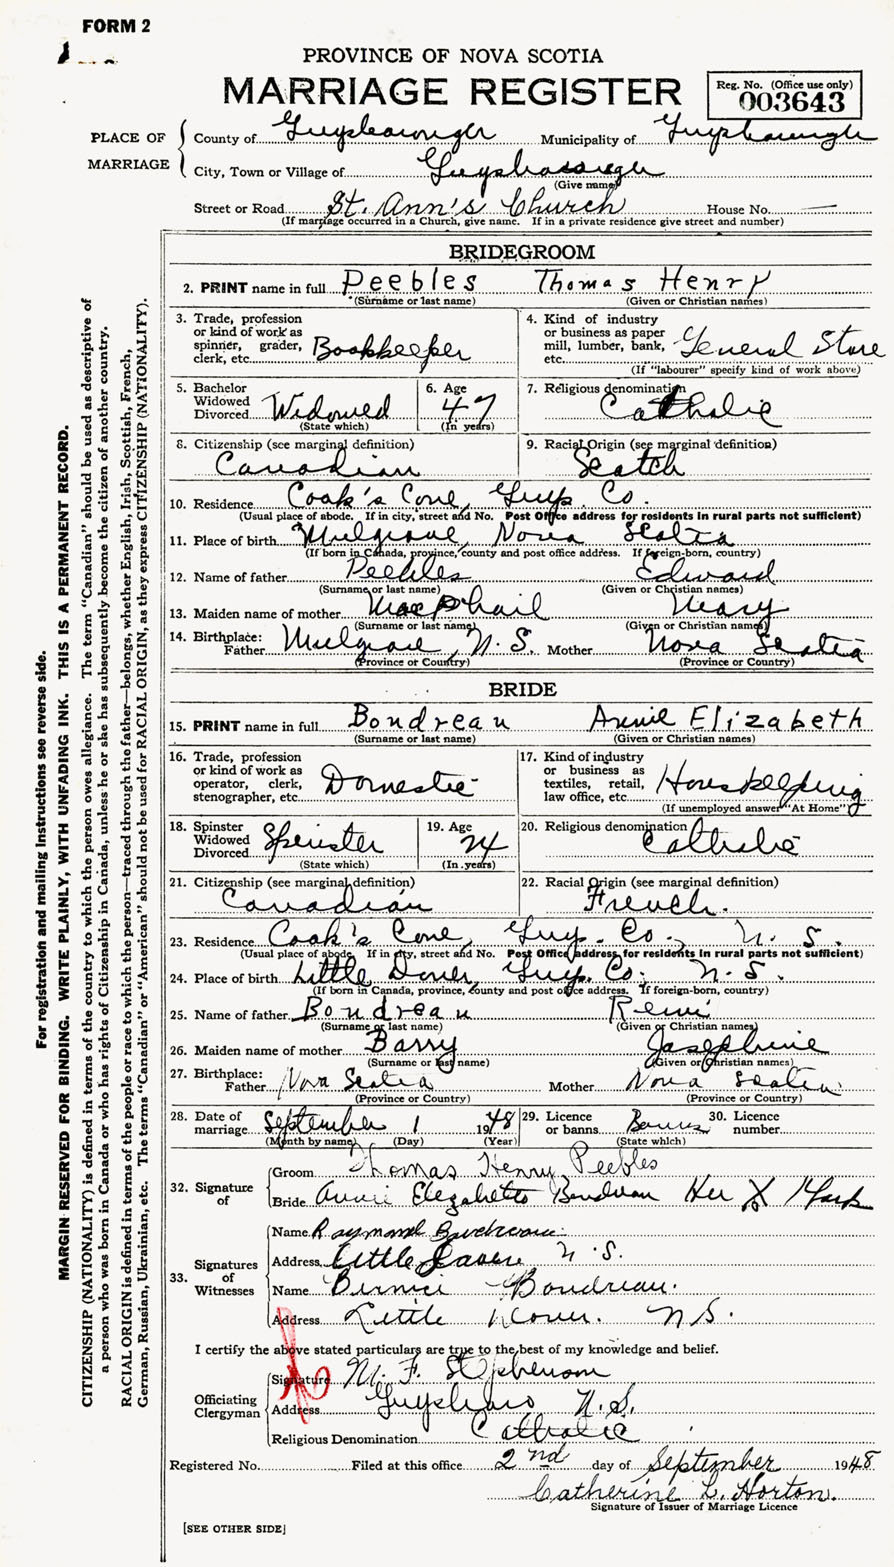 FORM 2
PROVINCE OF NOVA SCOTIA
MARRIAGE REGISTER
Reg. No. (Office use only)
003643
PLACE OF MARRIAGE
County of Guysborough Municipality of Guysborough
City, Town or Village of Guysborough
(Give name)
Street or Road St. Ann's Church House No. —
(If marriage occurred in a Church, give name. If in a private residence give street and number)
BRIDEGROOM
2. PRINT name in full Peebles Thomas Henry
(Surname or last name) (Given or Christian names)
3. Trade, profession or kind of work as spinner, grader, clerk, etc. Bookkeeper
4. Kind of industry or business as paper mill, lumber, bank, etc. General Store
(If "labourer" specify kind of work above)
5. Bachelor Widowed Divorced Widowed
(State which)
6. Age 47
(In years)
7. Religious denomination Catholic
8. Citizenship (see marginal definition) Canadian
9. Racial Origin (see marginal definition) Scotch
10. Residence Cook's Cove, Guys. Co.
(Usual place of abode. If in city, street and No. Post Office address for residents in rural parts not sufficient)
11. Place of birth Mulgrave, Nova Scotia
(If born in Canada, province, county and post office address. If foreign-born, country)
12. Name of father Peebles Edward
(Surname or last name) (Given or Christian names)
13. Maiden name of mother MacPhail Mary
(Surname or last name) (Given or Christian names)
14. Birthplace: Father Mulgrave, N. S. Mother Nova Scotia
(Province or Country) (Province or Country)
BRIDE
15. PRINT name in full Boudreau Annie Elizabeth
(Surname or last name) (Given or Christian names)
16. Trade, profession or kind of work as operator, clerk, stenographer, etc. Domestic
17. Kind of industry or business as textiles, retail, law office, etc. Houskeeping
(If unemployed answer "At Home")
18. Spinster Widowed Divorced Spinster
(State which)
19. Age 24
(In years)
20. Religious denomination Catholic
21. Citizenship (see marginal definition) Canadian
22. Racial Origin (see marginal definition) French.
23. Residence Cook's Cove, Guy. Co., N. S.
(Usual place of abode. If in city, street and No. Post Office address for residents in rural parts not sufficient)
24. Place of birth Little Dover, Guy. Co. N. S.
(If born in Canada, province, county and post office address. If foreign-born, country)
25. Name of father Boudreau Remi
(Surname or last name) (Given or Christian names)
26. Maiden name of mother Barry Josephine
(Surname or last name) (Given or Christian names)
27. Birthplace: Father Nova Scotia Mother Nova Scotia
(Province or Country) (Province or Country)
28. Date of marriage September 1 1948
(Month by name) (Day) (Year)
29. Licence or banns Banns
(State which)
30. Licence number
32. Signature of
Groom Thomas Henry Peebles
Bride Annie Elezabeth Boudreau Her X Mark
33. Signatures of Witnesses
Name Raymond Boudreau
Address Little Dover N. S.
Name Bernice Boudreau.
Address Little Dover. N S.
I certify the above stated particulars are true to the best of my knowledge and belief.
Officiating Clergyman
Signature M. F. Stephenson
Address Guysboro N. S.
Religious Denomination Catholic
Registered No. Filed at this office 2nd day of September 1948
Catherine L. Horton.
Signature of Issuer of Marriage Licence
[SEE OTHER SIDE]
For registration and mailing instructions see reverse side.
MARGIN RESERVED FOR BINDING. WRITE PLAINLY, WITH UNFADING INK. THIS IS A PERMANENT RECORD.
CITIZENSHIP (NATIONALITY) is defined in terms of the country to which the person owes allegiance. The term "Canadian" should be used as descriptive of
a person who was born in Canada or who has rights of Citizenship in Canada, unless he or she has subsequently become the citizen of another country.
RACIAL ORIGIN is defined in terms of the people or race to which the person—traced through the father—belongs, whether English, Irish, Scottish, French,
German, Russian, Ukrainian, etc. The terms "Canadian" or "American" should not be used for RACIAL ORIGIN, as they express CITIZENSHIP (NATIONALITY).